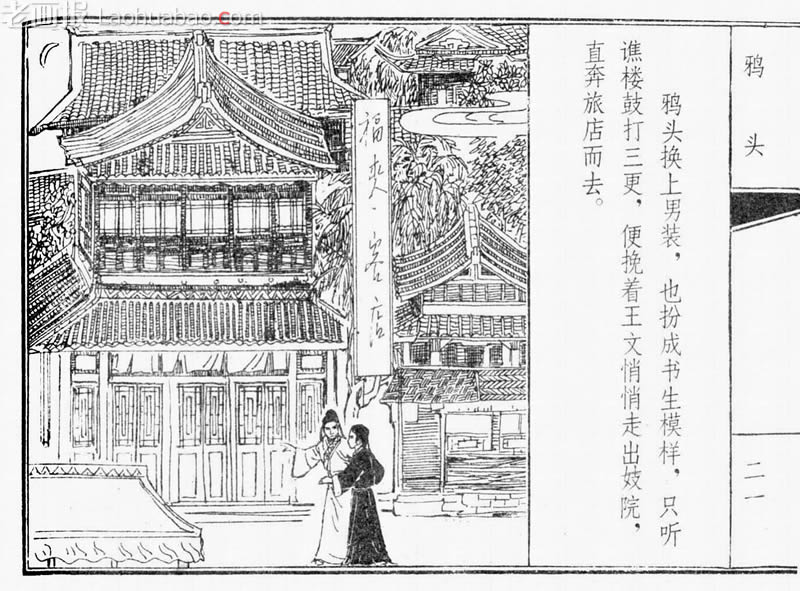 老画报 Laohuabao.com
鸦头
二一
鸦头换上男装，也扮成书生模样，只听
谯楼鼓打三更，便挽着王文悄悄走出妓院，
直奔旅店而去。
福 客店